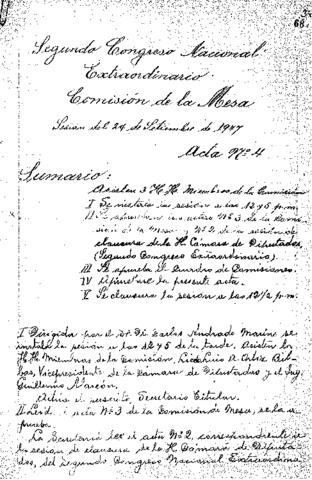 68.
Segundo Congreso Nacional
Extraordinario.
Comisión de la Mesa
Sesion del 24 de Setiembre de 1947
Acta Nº 4
Sumario:
Asisten 3 H.H. Miembros de la Comisión
I Se instala la sesión a las 12 y 5 p.m.
II Se aprueban las actas Nº 3 de la Comi-
sión de la Mesa y Nº 2 de la sesión de
clausura de la H. Cámara de Diputados,
(Segundo Congreso Extraordinario).
III Se aprueba el Cuadro de Comisiones.
IV Apruébase la presente acta.
V Se clausura la sesión a las 12 1/2 p.m.
I Dirigida por el Sr. Dr. Carlos Andrade Marín se
instala la sesión a las 12 y 5 de la tarde. Asisten los
H.H. Miembros de la Comisión, Licdo. Luis A.
Vicepresidente de la Cámara de Diputados y el Ing.
Guillermo Alarcón.
Actúa el suscrito, Secretario Titular.
II Leída acta Nº 3 de la Comisión de Mesa, se la a-
prueba.
La Secretaría lee el acta Nº 2, correspondiente a
la sesión de clausura de la H. Cámara de Diputa-
dos, del Segundo Congreso Nacional Extraordina